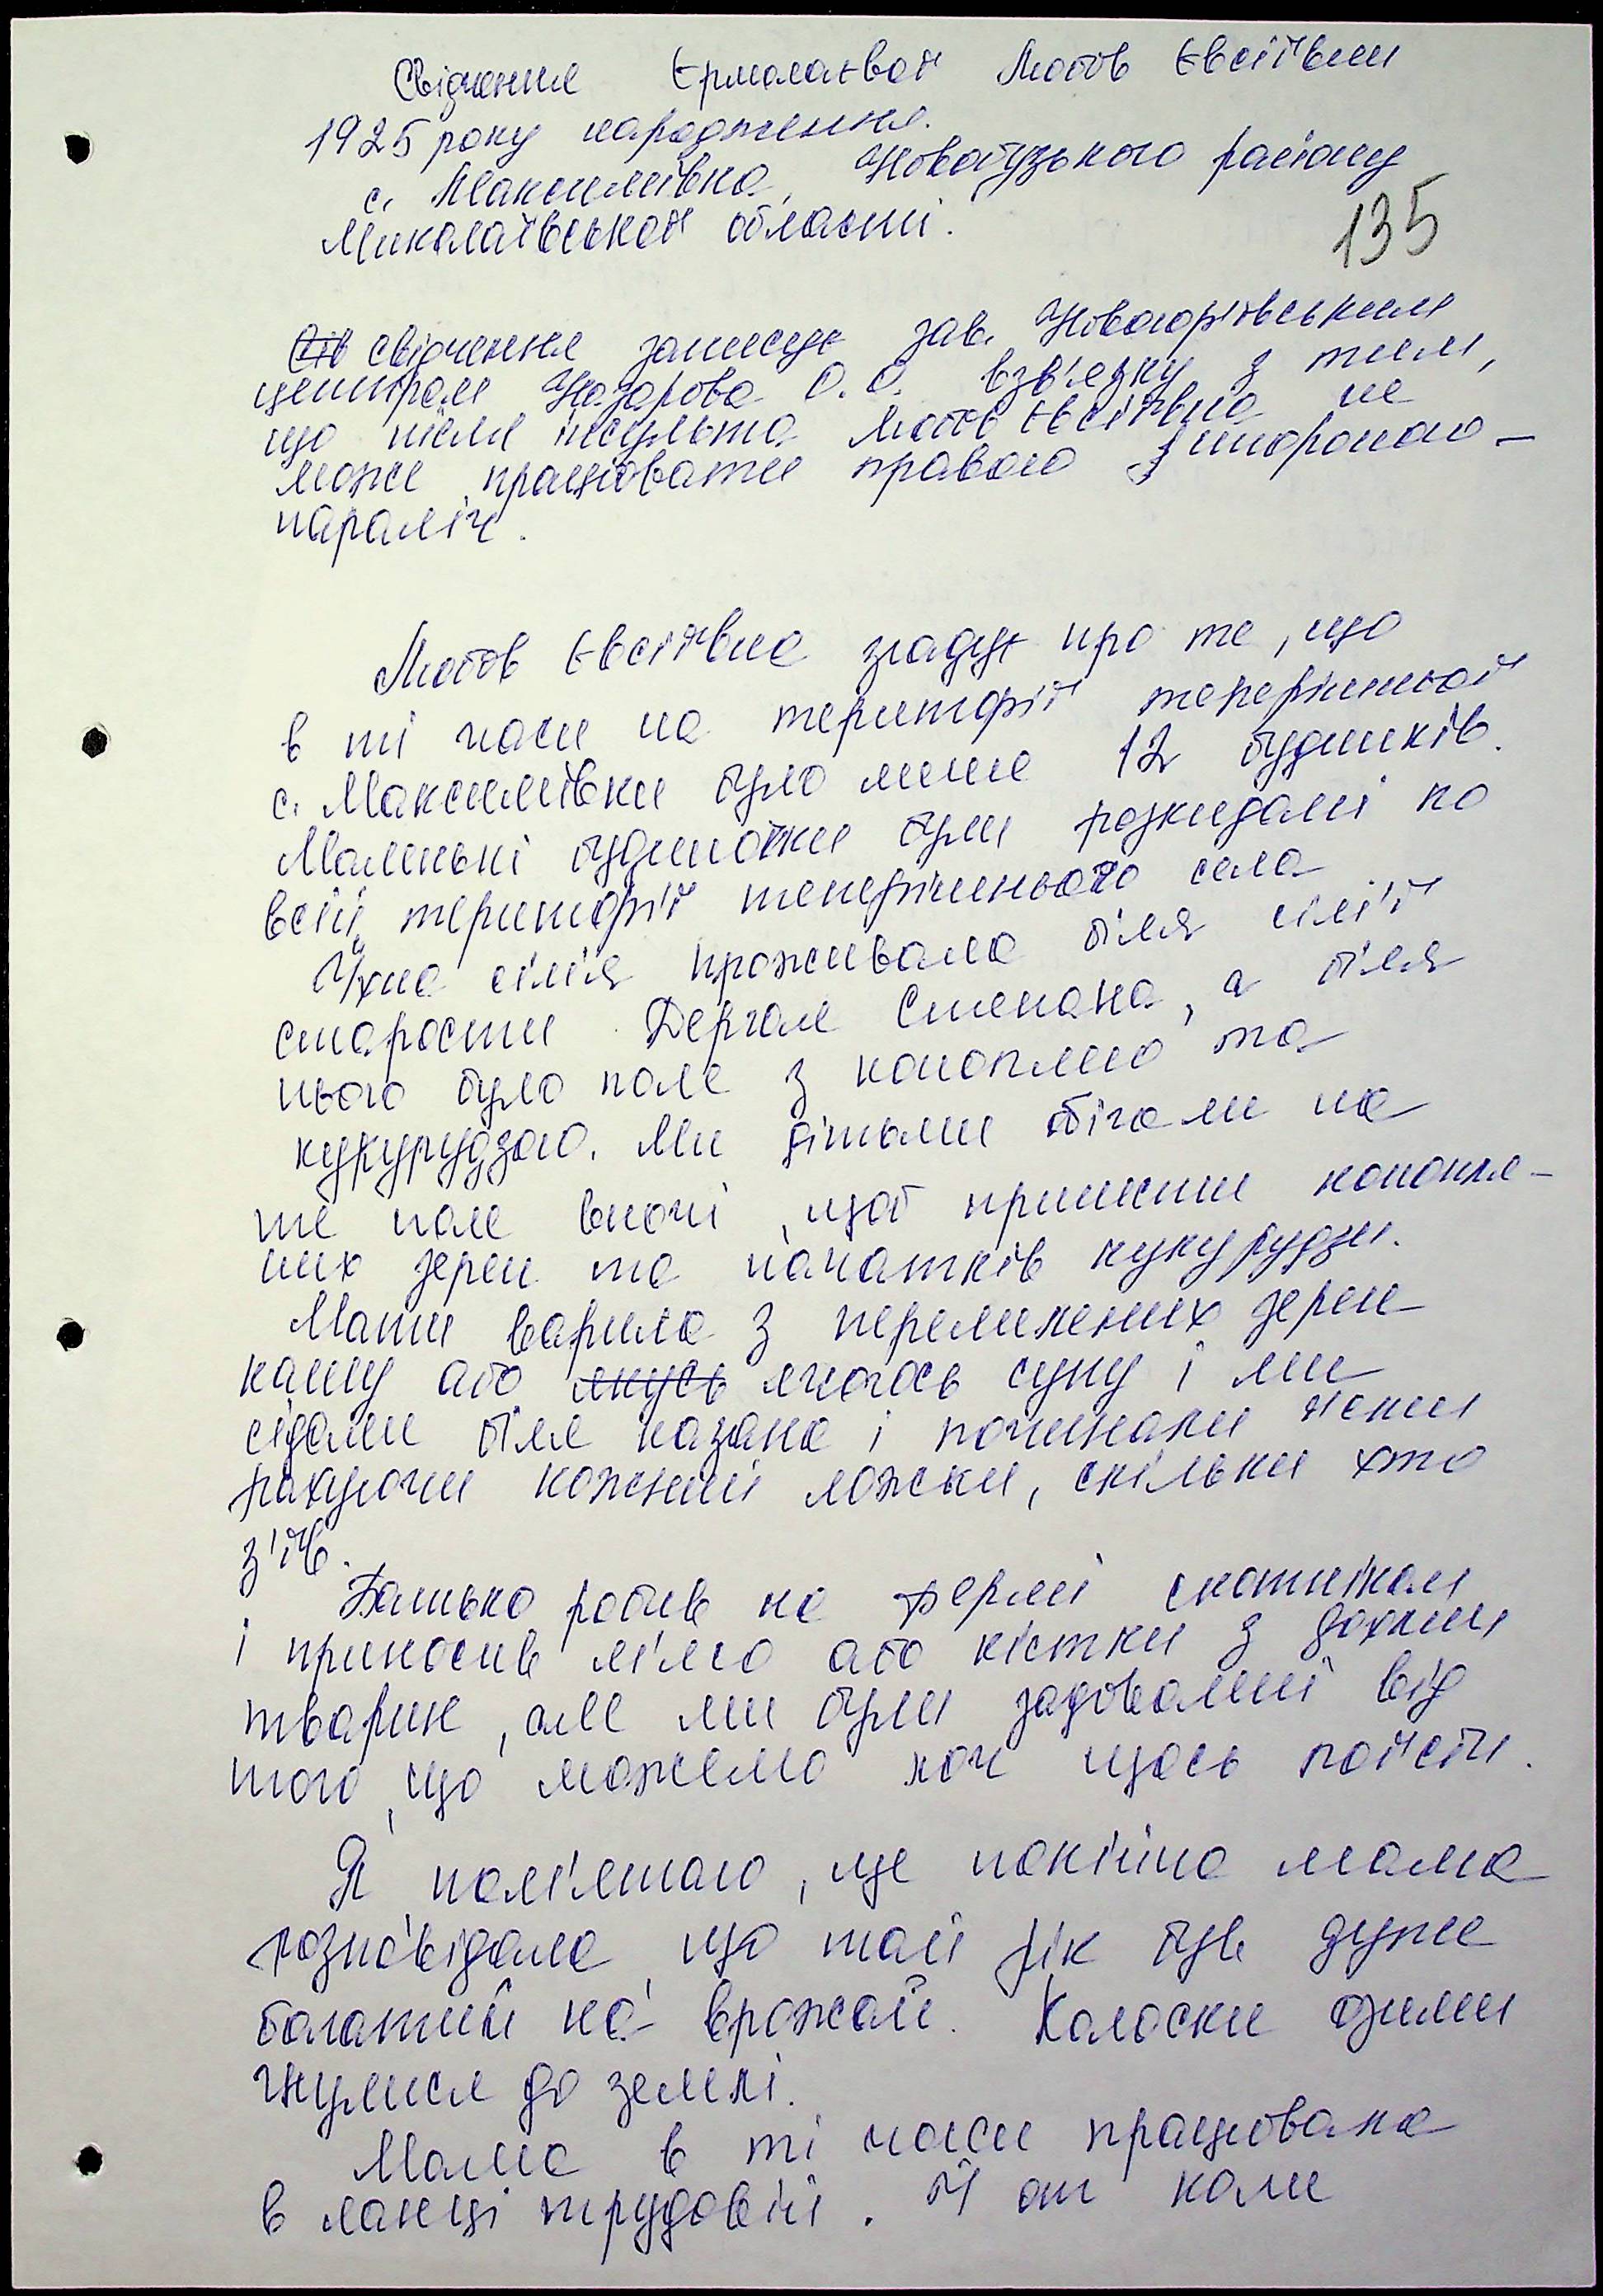 Свідчення Єрмолаєвої Любов Євсіївни
1925 року народження.
с. Максимівка, Новобузького району
Миколаївської області.
135
Сів свідчення записує зав. Новогорівським
центром Назарова О.О. взв'язку з тим,
що після інсульта Любов Євсіївна не
може працювати правою стороною –
параліч.
Любов Євсіївна згадує про те, що
в ті часи на території теперішньої
с. Максимівки було лише 12 будинків.
Маленькі будиночки були розкидані по
всій території теперішнього села
Їхна сім'я проживала біля сім'ї
старости Дергаля Степана, а біля
нього було поле з коноплею та
кукурудзою. Ми дітьми бігали на
те поле вночі, щоб принести конопля-
них зерен та початків кукурудзи.
Мати варила з перемелених зерен
кашу або якусь якогось супу і ми
сідали біля казана і починали їсти
рахуючи кожний ложки, скільки хто
з'їв.
Батько робив на фермі скотніком
і приносив м'ясо або кістки з дохлих
тварин, але ми були задоволені від
того, що можемо хоч щось поїсти.
Я пам'ятаю, ще покійна мама
розповідала, що той рік був дуже
багатий на врожай. Колоски озими
гнулися до землі.
Мама в ті часи працювала
в ланці трудовій. Й от коли